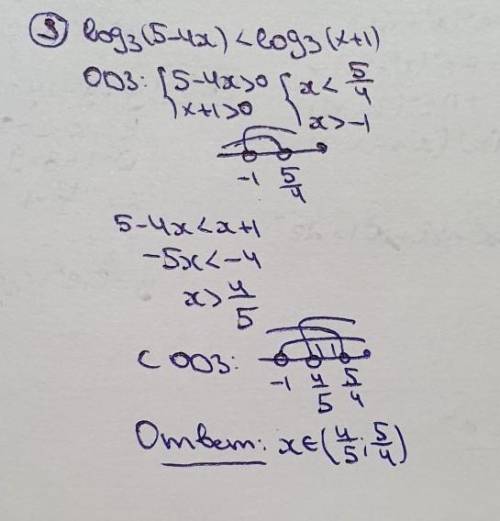 ③ log₃(5-4x) < log₃(x+1)
ОДЗ: { 5-4x>0 { x < 5/4
x+1>0 x>-1
-1 5/4
5-4x < x+1
-5x < -4
x > 4/5
С ОДЗ:
-1 4/5 5/4
Ответ: x∈(4/5; 5/4)